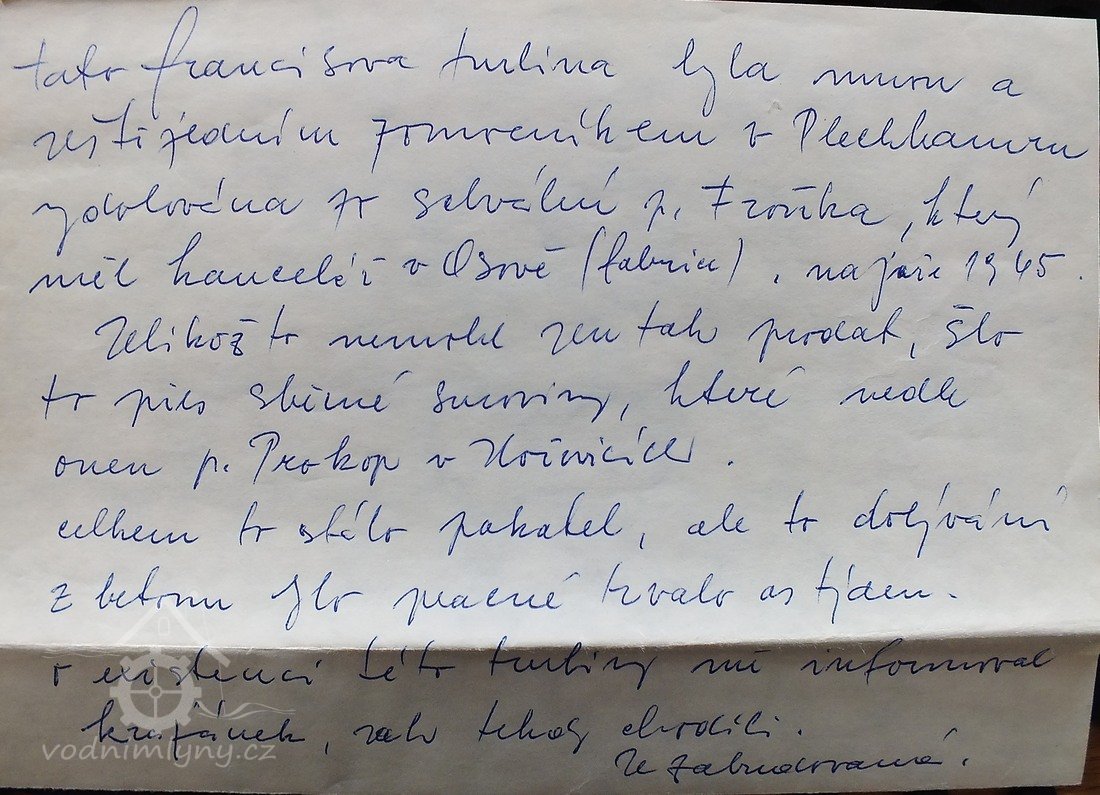 tato francisova turbina byla mnou a
ještě jedním pomocníkem v Plechhamru
vydolována za schválení p. Frolíka, který
měl kancelář v Osově (fabrice), na jaře 1965.
Jelikož to nemohl jen tak prodat, šlo
to přes sběrné suroviny, které vedl
onen p. Prokop v Hořovicích.
celkem to stálo pakatel, ale to dobývání
z betonu šlo pracně trvalo as týden.
o existenci této turbiny mě informoval
, jak tehdy chodili.
Je zabudovaná.
vodnimlyny.cz